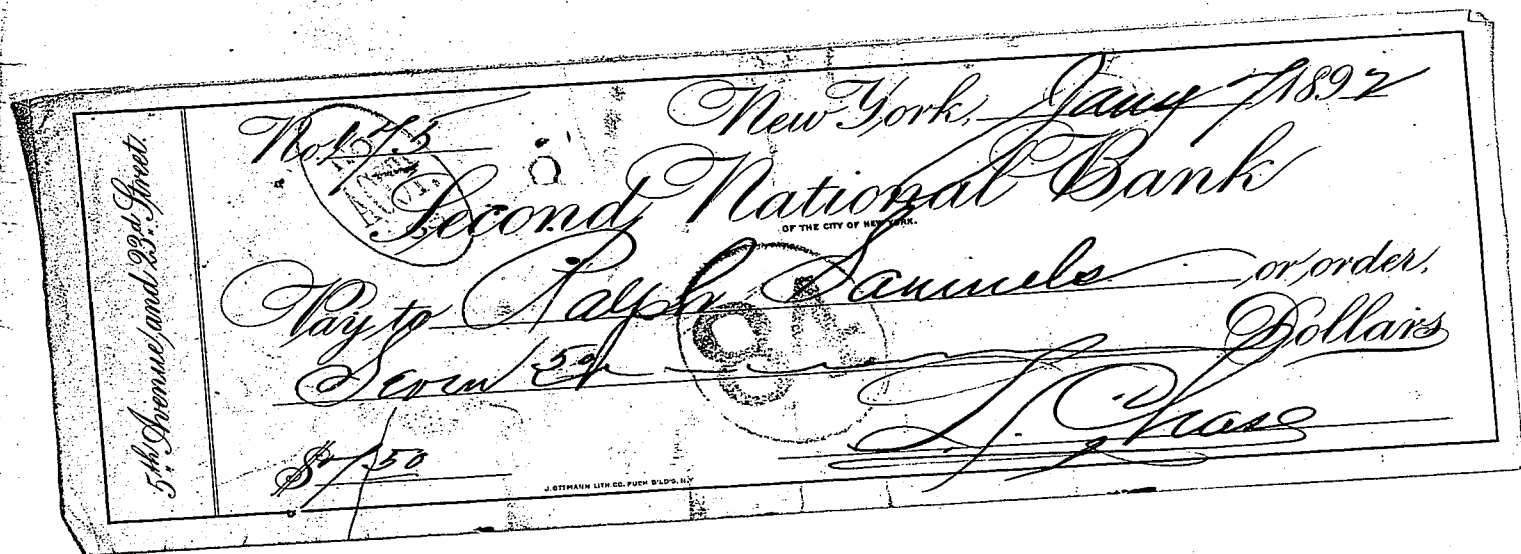 5th Avenue and 23d Street.
No. 1575
New York, Jany 7 1892
Second National Bank
OF THE CITY OF NEW YORK.
Pay to Ralph Samuels or order,
Seven 50/ Dollars
$7.50
L. Chase
J. OTTMANN LITH. CO. PUCK B'LD'G. N.Y.
84